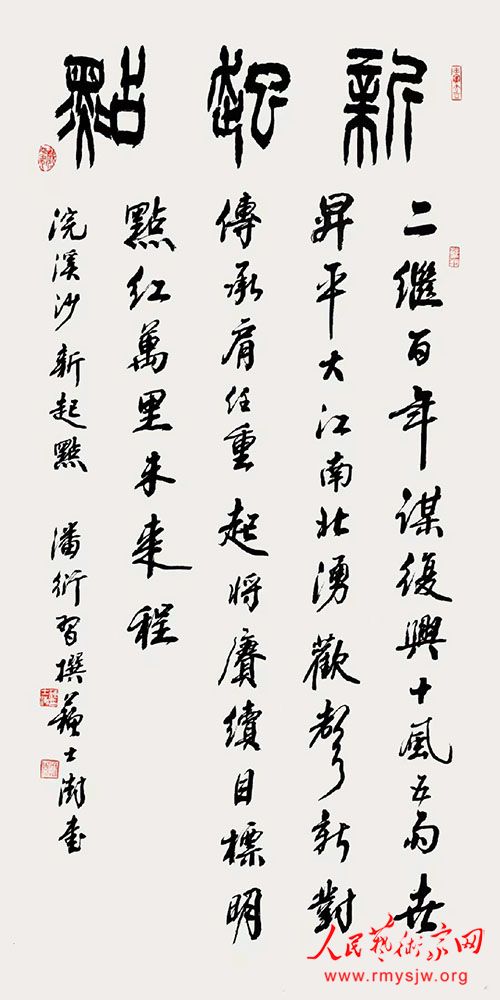 新起點
二繼百年謀復興十風五雨喜
昇平大江南北湧歡聲新對
傳承肩任重起將賡續目標明
點紅萬里未來程
浣溪沙新起點 潘衍習撰蘇士澍書
人民藝術家网
www.rmysjw.org